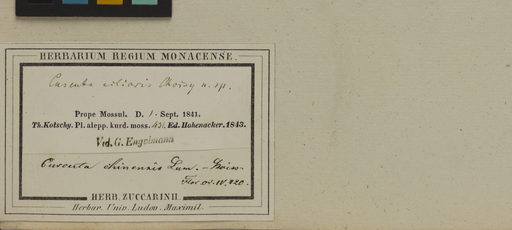 HERBARIUM REGIUM MONACENSE.
Cuscuta ciliaris Choisy n. sp.
Prope Mossul. D. 1. Sept. 1841.
Th. Kotschy. Pl. alepp. kurd. moss. 431. Ed. Hohenacker. 1843.
Vid. G. Engelmann
Cuscuta chinensis Lam. – Boiss.
Flor. or. IV. 120.
HERB. ZUCCARINII.
Herbar. Univ. Ludov. Maximil.